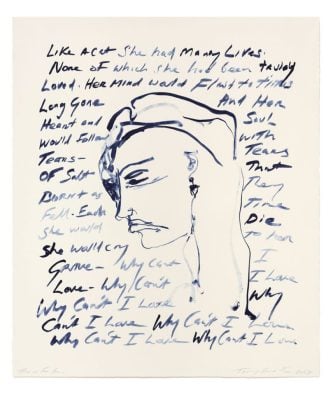 Like a cat she had many lives.
None of which she had been truly
Loved. Her mind would Float to times
Long Gone And Her
Heart and Soul
Would Follow with
Tears- Tears
OF Salt That
Burnt as They
Fell- Each Time
She would Die
She would cry To Her I
Gone- Why Can't I Love
Love- Why Can't Why
Why Can't I Love
Can't I Love Why Can't I Love
Why Can't I Love Why Can't I Love